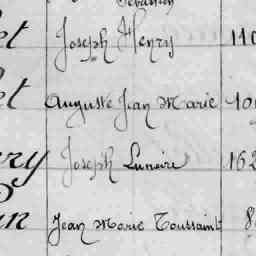 Sébastien
et Joseph Henry 110
et Auguste Jean Marie 10
ry Joseph Lunaire 162
in Jean Marie Toussaint 8